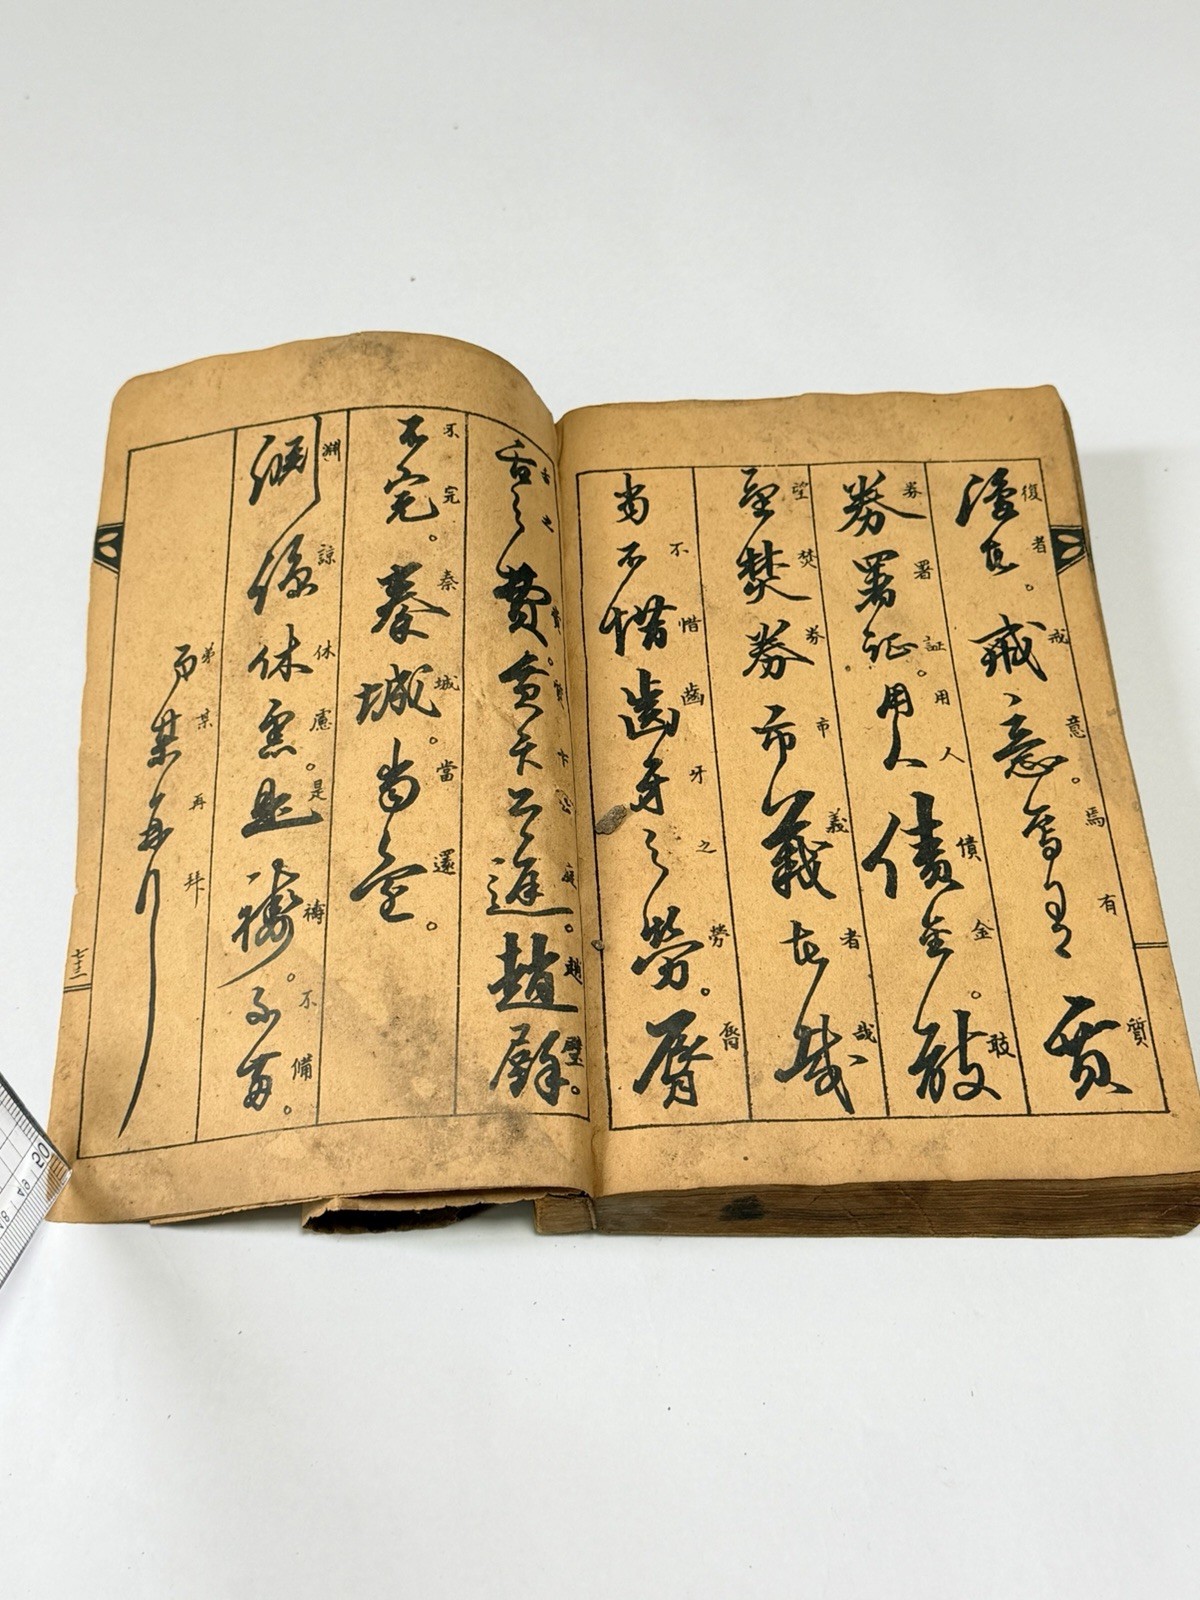 復者。戒意。焉有質
券署証。用人債金。敢
望焚券市義者哉
當不惜齒牙之勞。脣
舌之費。賁卞公庭。趙璧。
不完。秦城。當還。
淵諒休慮。是禱。不備。
弟某再拜
七三